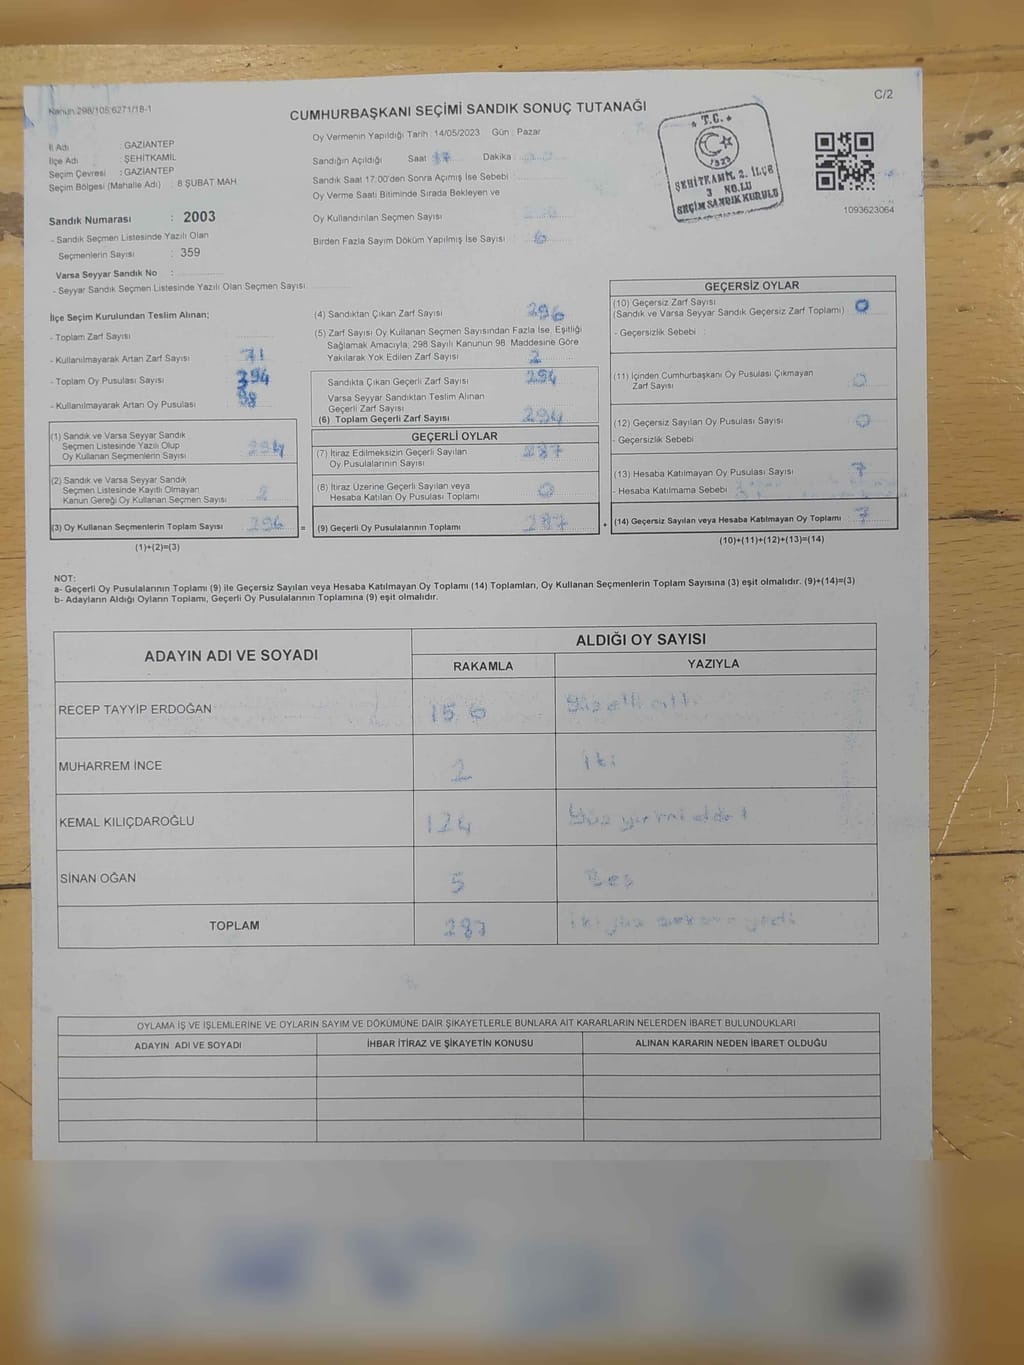 Kanun:298/105;6271/18-1
C/2
CUMHURBAŞKANI SEÇİMİ SANDIK SONUÇ TUTANAĞI
İl Adı : GAZİANTEP
İlçe Adı : ŞEHİTKAMİL
Seçim Çevresi : GAZİANTEP
Seçim Bölgesi (Mahalle Adı) : 8 ŞUBAT MAH.
Sandık Numarası : 2003
- Sandık Seçmen Listesinde Yazılı Olan
Seçmenlerin Sayısı : 359
Varsa Seyyar Sandık No :
- Seyyar Sandık Seçmen Listesinde Yazılı Olan Seçmen Sayısı:
Oy Vermenin Yapıldığı Tarih : 14/05/2023 Gün : Pazar
Sandığın Açıldığı Saat : 17 Dakika :
Sandık Saat 17:00'den Sonra Açımış İse Sebebi :
Oy Verme Saati Bitiminde Sırada Bekleyen ve
Oy Kullandırılan Seçmen Sayısı
Birden Fazla Sayım Döküm Yapılmış İse Sayısı :
T.C.
1923
ŞEHİTKAMİL 2. İLÇE
3 NO.LU
SEÇİM SANDIK KURULU
1093623064
İlçe Seçim Kurulundan Teslim Alınan;
- Toplam Zarf Sayısı :
- Kullanılmayarak Artan Zarf Sayısı : 71
- Toplam Oy Pusulası Sayısı : 394
- Kullanılmayarak Artan Oy Pusulası : 98
(1) Sandık ve Varsa Seyyar Sandık
Seçmen Listesinde Yazılı Olup
Oy Kullanan Seçmenlerin Sayısı 294
(2) Sandık ve Varsa Seyyar Sandık
Seçmen Listesinde Kayıtlı Olmayan
Kanun Gereği Oy Kullanan Seçmen Sayısı 2
(3) Oy Kullanan Seçmenlerin Toplam Sayısı 296 =
(1)+(2)=(3)
(4) Sandıktan Çıkan Zarf Sayısı 296
(5) Zarf Sayısı Oy Kullanan Seçmen Sayısından Fazla İse, Eşitliği
Sağlamak Amacıyla; 298 Sayılı Kanunun 98. Maddesine Göre
Yakılarak Yok Edilen Zarf Sayısı 2
Sandıkta Çıkan Geçerli Zarf Sayısı 294
Varsa Seyyar Sandıktan Teslim Alınan
Geçerli Zarf Sayısı
(6) Toplam Geçerli Zarf Sayısı 294
GEÇERLİ OYLAR
(7) İtiraz Edilmeksizin Geçerli Sayılan
Oy Pusulalarının Sayısı 287
(8) İtiraz Üzerine Geçerli Sayılan veya
Hesaba Katılan Oy Pusulası Toplamı 0
(9) Geçerli Oy Pusulalarının Toplamı 287 +
GEÇERSİZ OYLAR
(10) Geçersiz Zarf Sayısı
(Sandık ve Varsa Seyyar Sandık Geçersiz Zarf Toplamı) : 0
- Geçersizlik Sebebi :
(11) İçinden Cumhurbaşkanı Oy Pusulası Çıkmayan
Zarf Sayısı 0
(12) Geçersiz Sayılan Oy Pusulası Sayısı 0
- Geçersizlik Sebebi
(13) Hesaba Katılmayan Oy Pusulası Sayısı 7
- Hesaba Katılmama Sebebi
(14) Geçersiz Sayılan veya Hesaba Katılmayan Oy Toplamı 7
(10)+(11)+(12)+(13)=(14)
NOT:
a- Geçerli Oy Pusulalarının Toplamı (9) ile Geçersiz Sayılan veya Hesaba Katılmayan Oy Toplamı (14) Toplamları, Oy Kullanan Seçmenlerin Toplam Sayısına (3) eşit olmalıdır. (9)+(14)=(3)
b- Adayların Aldığı Oyların Toplamı, Geçerli Oy Pusulalarının Toplamına (9) eşit olmalıdır.
ADAYIN ADI VE SOYADI
ALDIĞI OY SAYISI
RAKAMLA YAZIYLA
RECEP TAYYİP ERDOĞAN 156 Yüz elli altı
MUHARREM İNCE 2 iki
KEMAL KILIÇDAROĞLU 124 Yüz yirmi dört
SİNAN OĞAN 5 Beş
TOPLAM 287 iki yüz seksen yedi
OYLAMA İŞ VE İŞLEMLERİNE VE OYLARIN SAYIM VE DÖKÜMÜNE DAİR ŞİKAYETLERLE BUNLARA AİT KARARLARIN NELERDEN İBARET BULUNDUKLARI
ADAYIN ADI VE SOYADI İHBAR İTİRAZ VE ŞİKAYETİN KONUSU ALINAN KARARIN NEDEN İBARET OLDUĞU